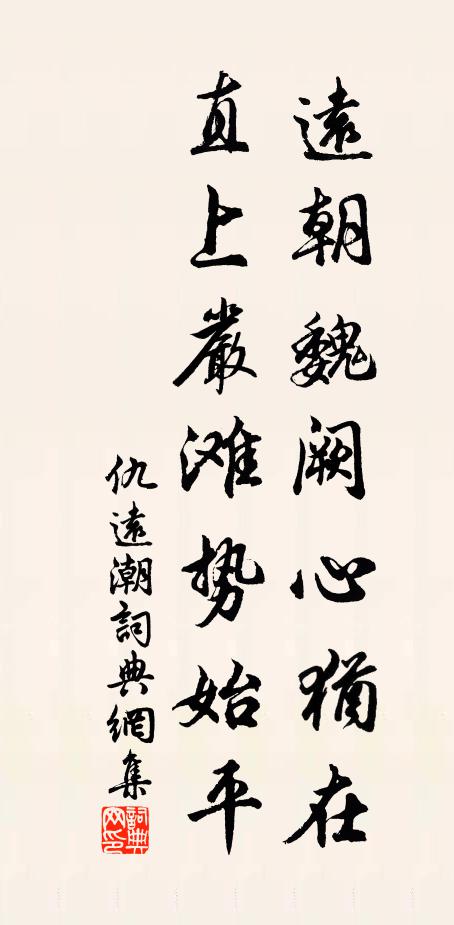 遠朝魏阙心猶在
直上嚴滩势始平
仇遠潮詞典網集
詞典网印